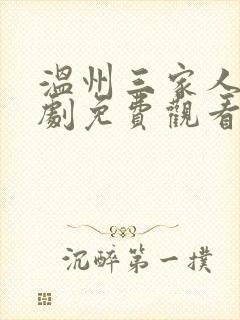 溫州三家人
劇免費觀看
沉醉第一撲